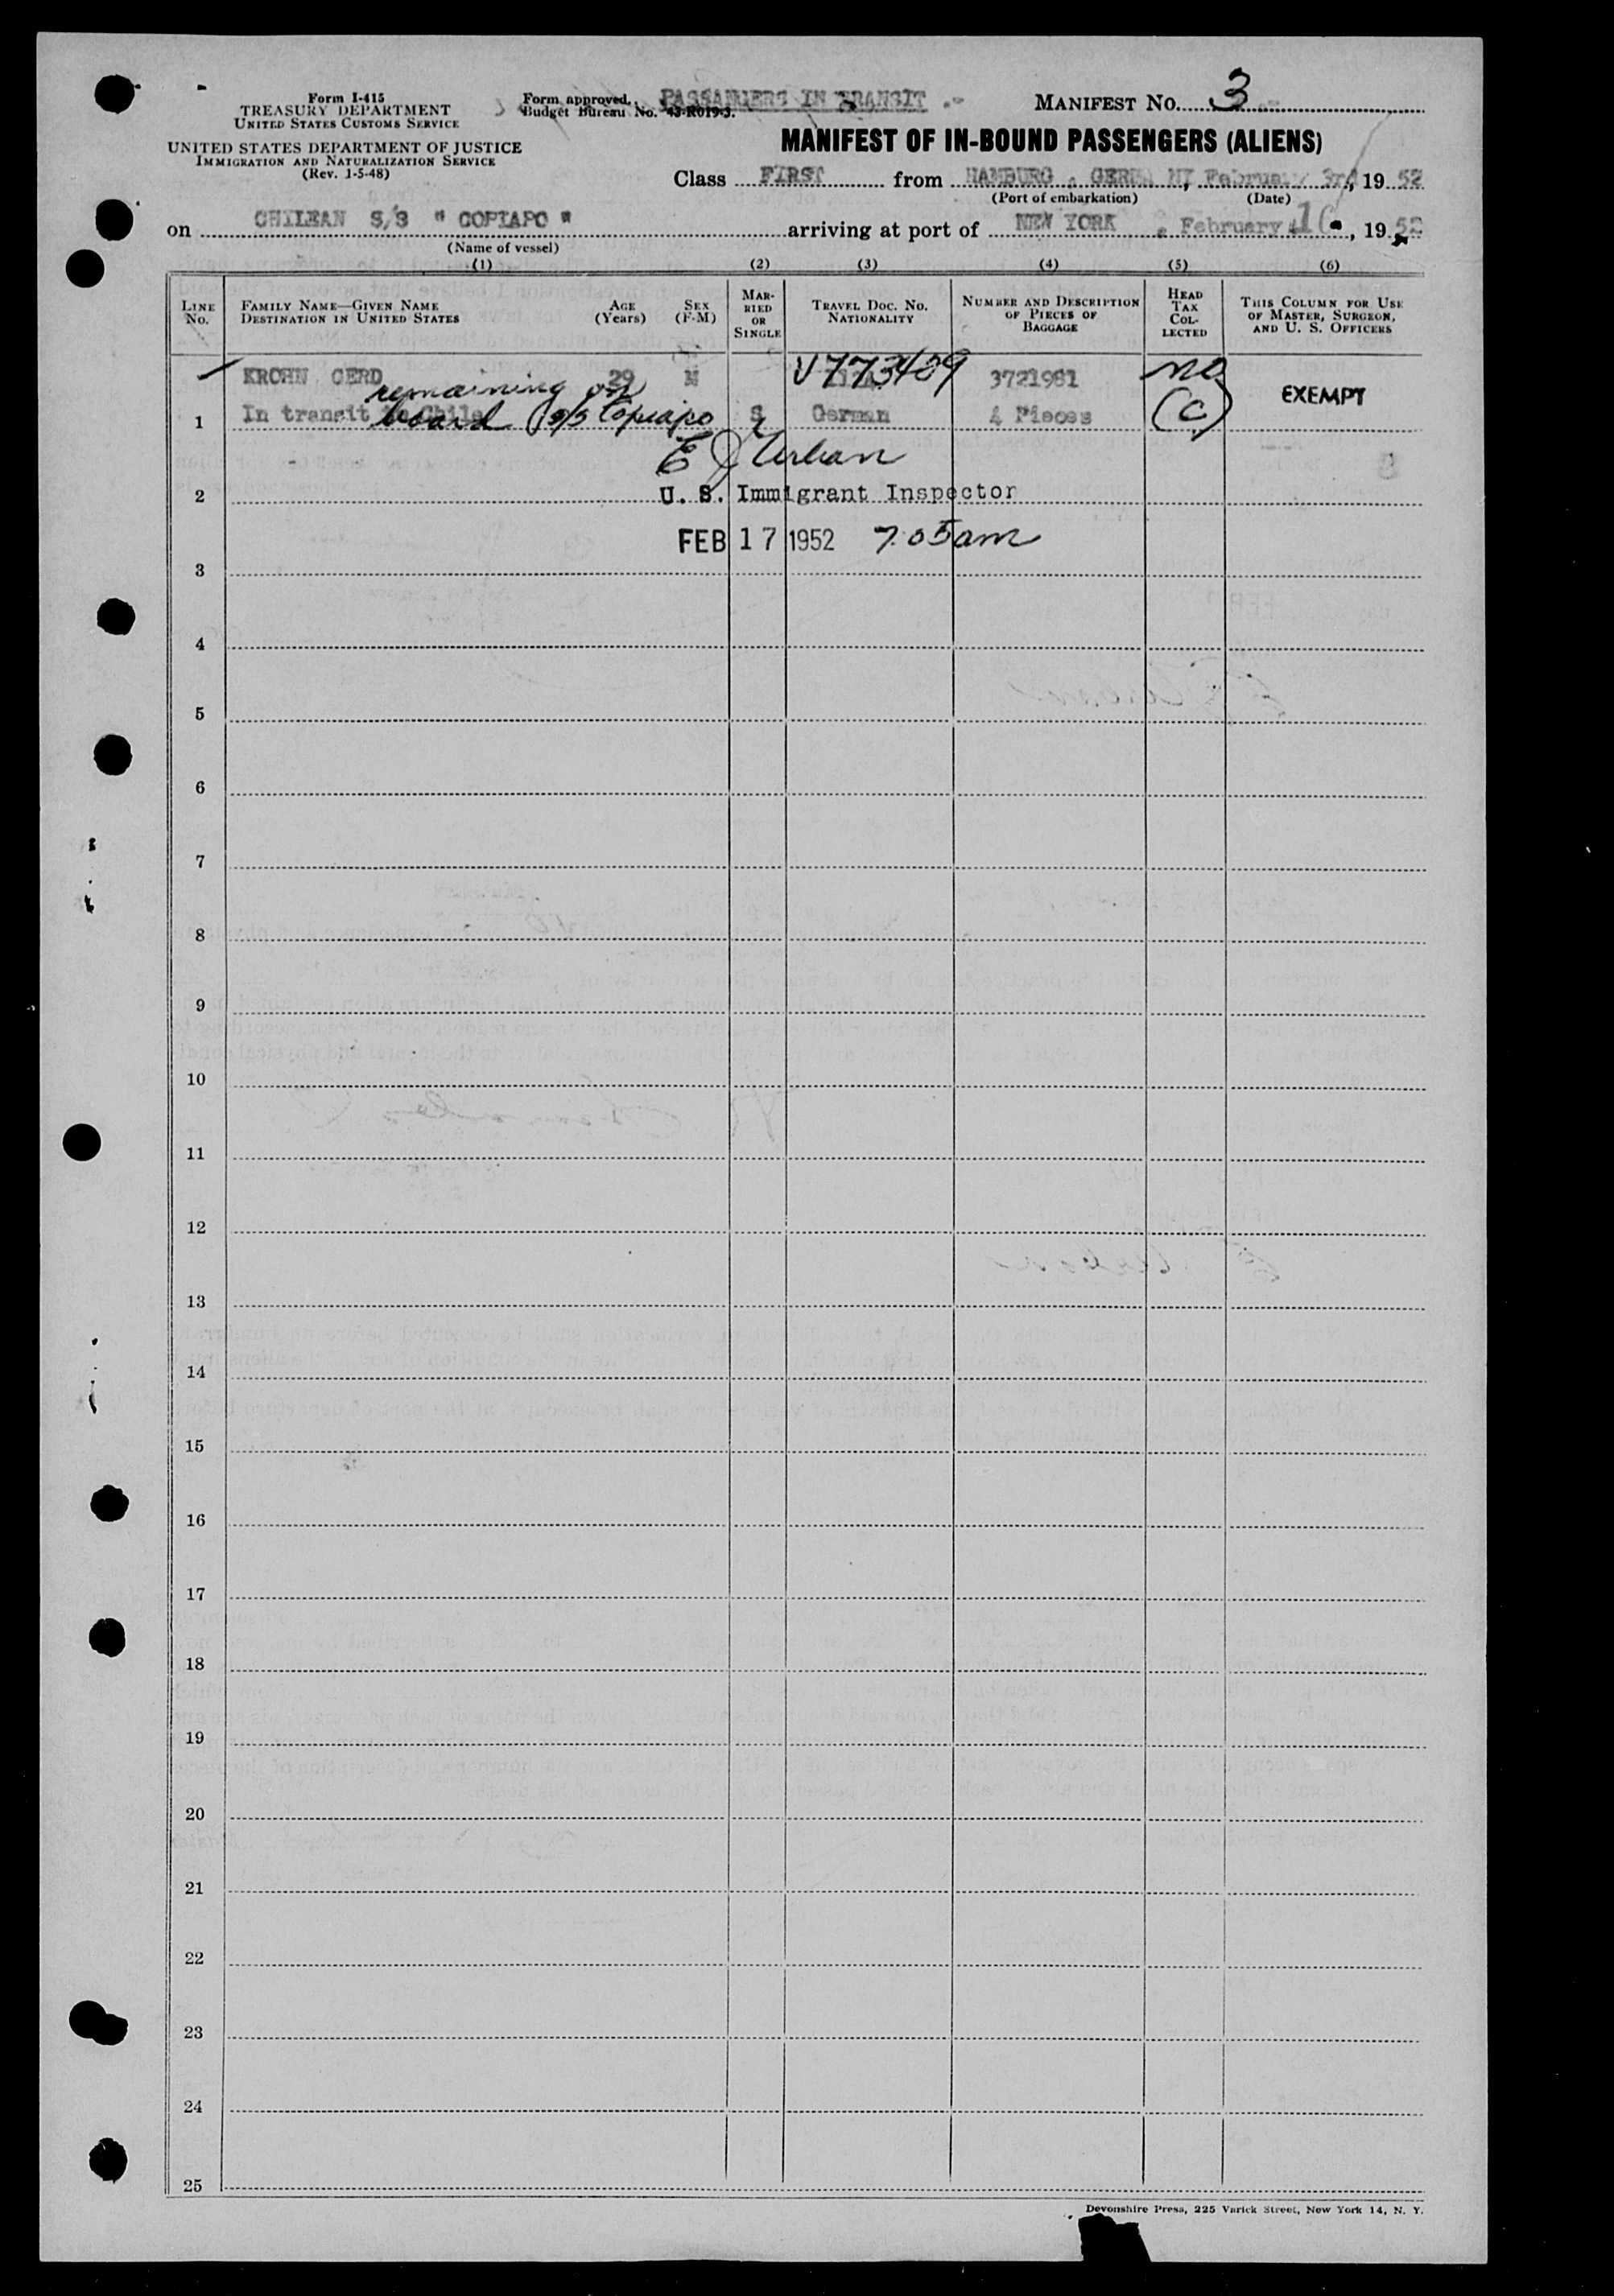 Form I-415
TREASURY DEPARTMENT
UNITED STATES CUSTOMS SERVICE
UNITED STATES DEPARTMENT OF JUSTICE
IMMIGRATION AND NATURALIZATION SERVICE
(Rev. 1-5-48)
Form approved.
Budget Bureau No. 43-R019-3.
PASSANGERS IN TRANSIT .-
MANIFEST NO. 3
MANIFEST OF IN-BOUND PASSENGERS (ALIENS)
Class FIRST from HAMBURG, GERMANY, February 3rd, 1952
(Port of embarkation) (Date)
on CHILEAN S/S " COPIAPO " arriving at port of NEW YORK, February 16, 1952
(Name of vessel)
(1) (2) (3) (4) (5) (6)
LINE NO.
FAMILY NAME—GIVEN NAME
DESTINATION IN UNITED STATES
AGE (Years)
SEX (F-M)
MARRIED OR SINGLE
TRAVEL DOC. NO.
NATIONALITY
NUMBER AND DESCRIPTION OF PIECES OF BAGGAGE
HEAD TAX COLLECTED
THIS COLUMN FOR USE OF MASTER, SURGEON, AND U. S. OFFICERS
KROHN GERD 29 M V773409 3721981 no EXEMPT
remaining on
1 In transit to Chile S German 4 Pieces (C)
board S/S Copiapo
E J Urban
2 U. S. Immigrant Inspector
FEB 17 1952 7.05am
3
4
5
6
7
8
9
10
11
12
13
14
15
16
17
18
19
20
21
22
23
24
25
Devonshire Press, 225 Varick Street, New York 14, N. Y.